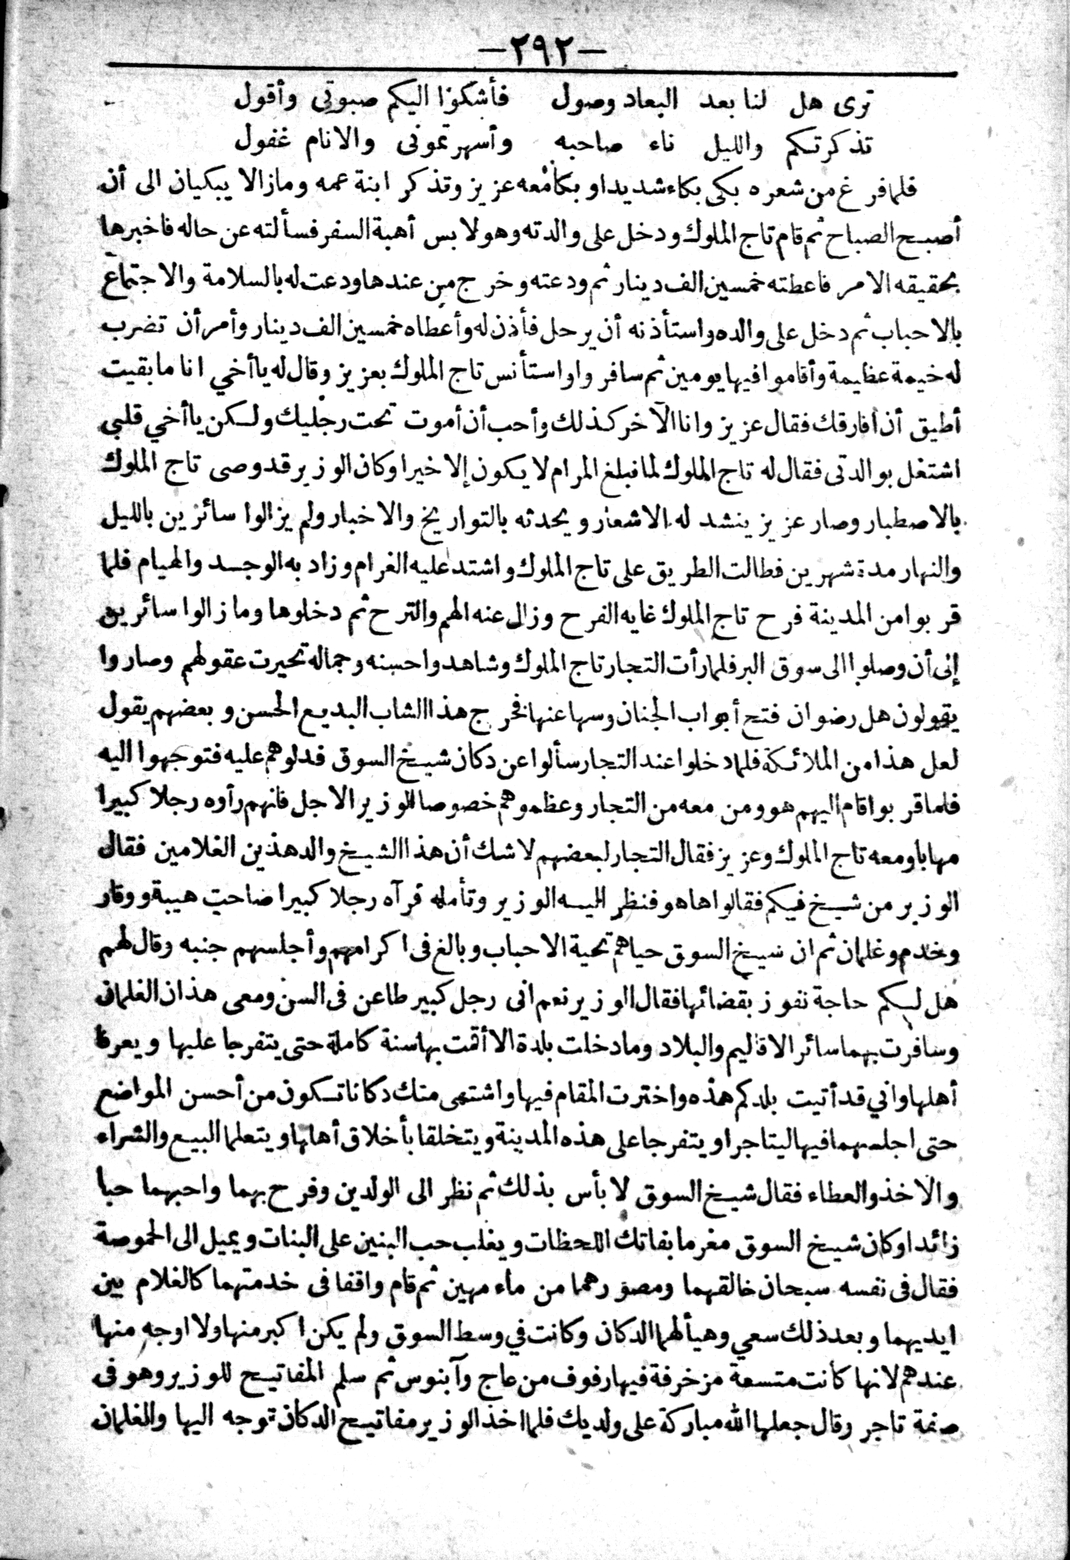 —٢٩٢—
ترى هل لنا بعد البعاد وصول فأشكوا اليكم صبوتى وأقول
تذكرتكم والليل ناء صاحبه وأسهرتمونى والانام غفول
فلما فرغ من شعره بكى بكاء شديدا وبكامعه عزيز وتذكر ابنة عمه ومازالا يبكيان الى أن
أصبح الصباح ثم قام تاج الملوك ودخل على والدته وهو لابس أهبة السفر فسألته عن حاله فاخبرها
بحقيقه الامر فاعطته خمسين الف دينار ثم ودعته وخرج من عندها ودعت له بالسلامة والاجتماع
بالاحباب ثم دخل على والده واستأذنه أن يرحل فأذن له وأعطاه خمسين الف دينار وأمر أن تضرب
له خيمة عظيمة وأقاموا فيها يومين ثم سافروا واستأنس تاج الملوك بعزيز وقال له ياأخي انا مابقيت
أطيق أن افارقك فقال عزيز وانا الآخر كذلك وأحب أن أموت تحت رجليك ولكن ياأخي قلبي
اشتغل بوالدتى فقال له تاج الملوك لما نبلغ المرام لا يكون إلا خيرا وكان الوزير قد وصى تاج الملوك
بالاصطبار وصار عزيز ينشد له الاشعار ويحدثه بالتواريخ والاخبار ولم يزالوا سائرين بالليل
والنهار مدة شهرين فطالت الطريق على تاج الملوك واشتد عليه الغرام وزاد به الوجد والهيام فلما
قربوا من المدينة فرح تاج الملوك غايه الفرح وزال عنه الهم والترح ثم دخلوها وما زالوا سائرين
إلى أن وصلوا الى سوق البر فلما رأت التجار تاج الملوك وشاهدوا حسنه وجماله تحيرت عقولهم وصاروا
يقولون هل رضوان فتح أبواب الجنان وسها عنها فخرج هذا الشاب البديع الحسن وبعضهم يقول
لعل هذا من الملائكة فلما دخلوا عند التجار سألوا عن دكان شيخ السوق فدلوهم عليه فتوجهوا اليه
فلما قربوا قام اليهم هو ومن معه من التجار وعظموهم خصوصا الوزير الاجل فانهم رأوه رجلا كبيرا
مهابا ومعه تاج الملوك وعزيز فقال التجار لبعضهم لاشك أن هذا الشيخ والد هذين الغلامين فقال
الوزير من شيخ فيكم فقالوا ها هو فنظر اليه الوزير وتأمله فرآه رجلا كبيرا صاحب هيبة ووقار
وخدم وغلمان ثم ان شيخ السوق حياهم تحية الاحباب وبالغ فى اكرامهم وأجلسهم جنبه وقال لهم
هل لكم حاجة نفوز بقضائها فقال الوزير نعم انى رجل كبير طاعن فى السن ومعى هذان الغلمان
وسافرت بهما سائر الاقاليم والبلاد وما دخلت بلدة الا أقمت بها سنة كاملة حتى يتفرجا عليها ويعرفا
أهلها واني قد أتيت بلدكم هذه واخترت المقام فيها واشتهى منك دكانا تكون من أحسن المواضع
حتى اجلسهما فيها ليتاجرا ويتفرجا على هذه المدينة ويتخلقا بأخلاق أهلها ويتعلما البيع والشراء
والاخذ والعطاء فقال شيخ السوق لا بأس بذلك ثم نظر الى الولدين وفرح بهما واحبهما حبا
زائدا وكان شيخ السوق مغرما بفاتك اللحظات ويغلب حب البنين على البنات ويميل الى الحموصة
فقال فى نفسه سبحان خالقهما ومصورهما من ماء مهين ثم قام واقفا فى خدمتهما كالغلام بين
ايديهما وبعد ذلك سعي وهيأ لهما الدكان وكانت في وسط السوق ولم يكن اكبر منها ولا اوجه منها
عندهم لانها كانت متسعة مزخرفة فيها رفوف من عاج وآبنوس ثم سلم المفاتيح للوزير وهو فى
صفة تاجر وقال جعلها الله مباركة على ولديك فلما اخذ الوزير مفاتيح الدكان توجه اليها والغلمان